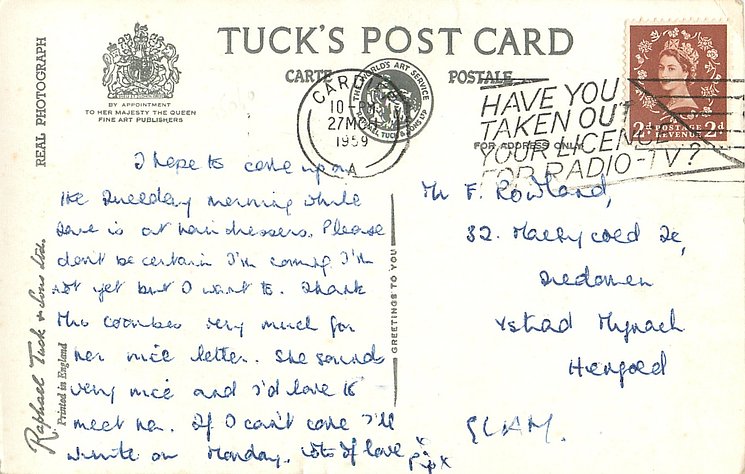 TUCK'S POST CARD
CARTE POSTALE
BY APPOINTMENT
TO HER MAJESTY THE QUEEN
FINE ART PUBLISHERS
REAL PHOTOGRAPH
THE WORLD'S ART SERVICE
CARDIFF
10 - PM
27 MCH
1959
A
HAVE YOU
TAKEN OUT
YOUR LICENCE
FOR RADIO-TV?
2d POSTAGE 2d
REVENUE
FOR ADDRESS ONLY
I hope to come up on
the Tuesday morning while
Dave is at hairdressers. Please
don't be certain I'm coming I'm
not yet but I want to. Thank
Mrs Coombes very much for
her nice letter. She sounds
very nice and I'd love to
meet her. If I can't come I'll
write on Monday. lots of love
Pip X
GREETINGS TO YOU
Raphael Tuck & Sons Ltd.
Printed in England
Mr F. Rowland,
32. Maesycoed
Tredomen
Ystrad Mynach
Hengoed
GLAM.